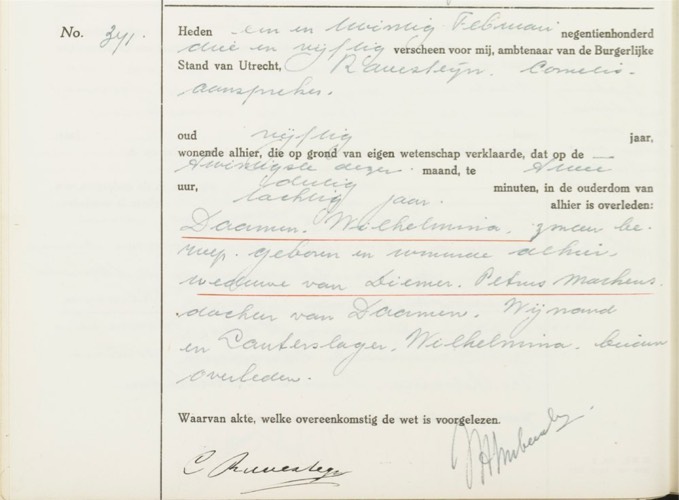 No. 341.
Heden een en twintig Februari negentienhonderd
drie en vijftig verscheen voor mij, ambtenaar van de Burgerlijke
Stand van Utrecht, Ravesteijn. Cornelis.
aanspreker.
oud vijftig jaar,
wonende alhier, die op grond van eigen wetenschap verklaarde, dat op de
twintigste dezer maand, te twee
uur, dertig minuten, in de ouderdom van
tachtig jaar. alhier is overleden:
Daamen. Wilhelmina. zonder be-
roep. geboren en wonende alhier.
weduwe van Diemer. Petrus Matheus.
dochter van Daamen. Wijnand
en Lauterslager. Wilhelmina. beiden
overleden.
Waarvan akte, welke overeenkomstig de wet is voorgelezen.
C Ravesteijn